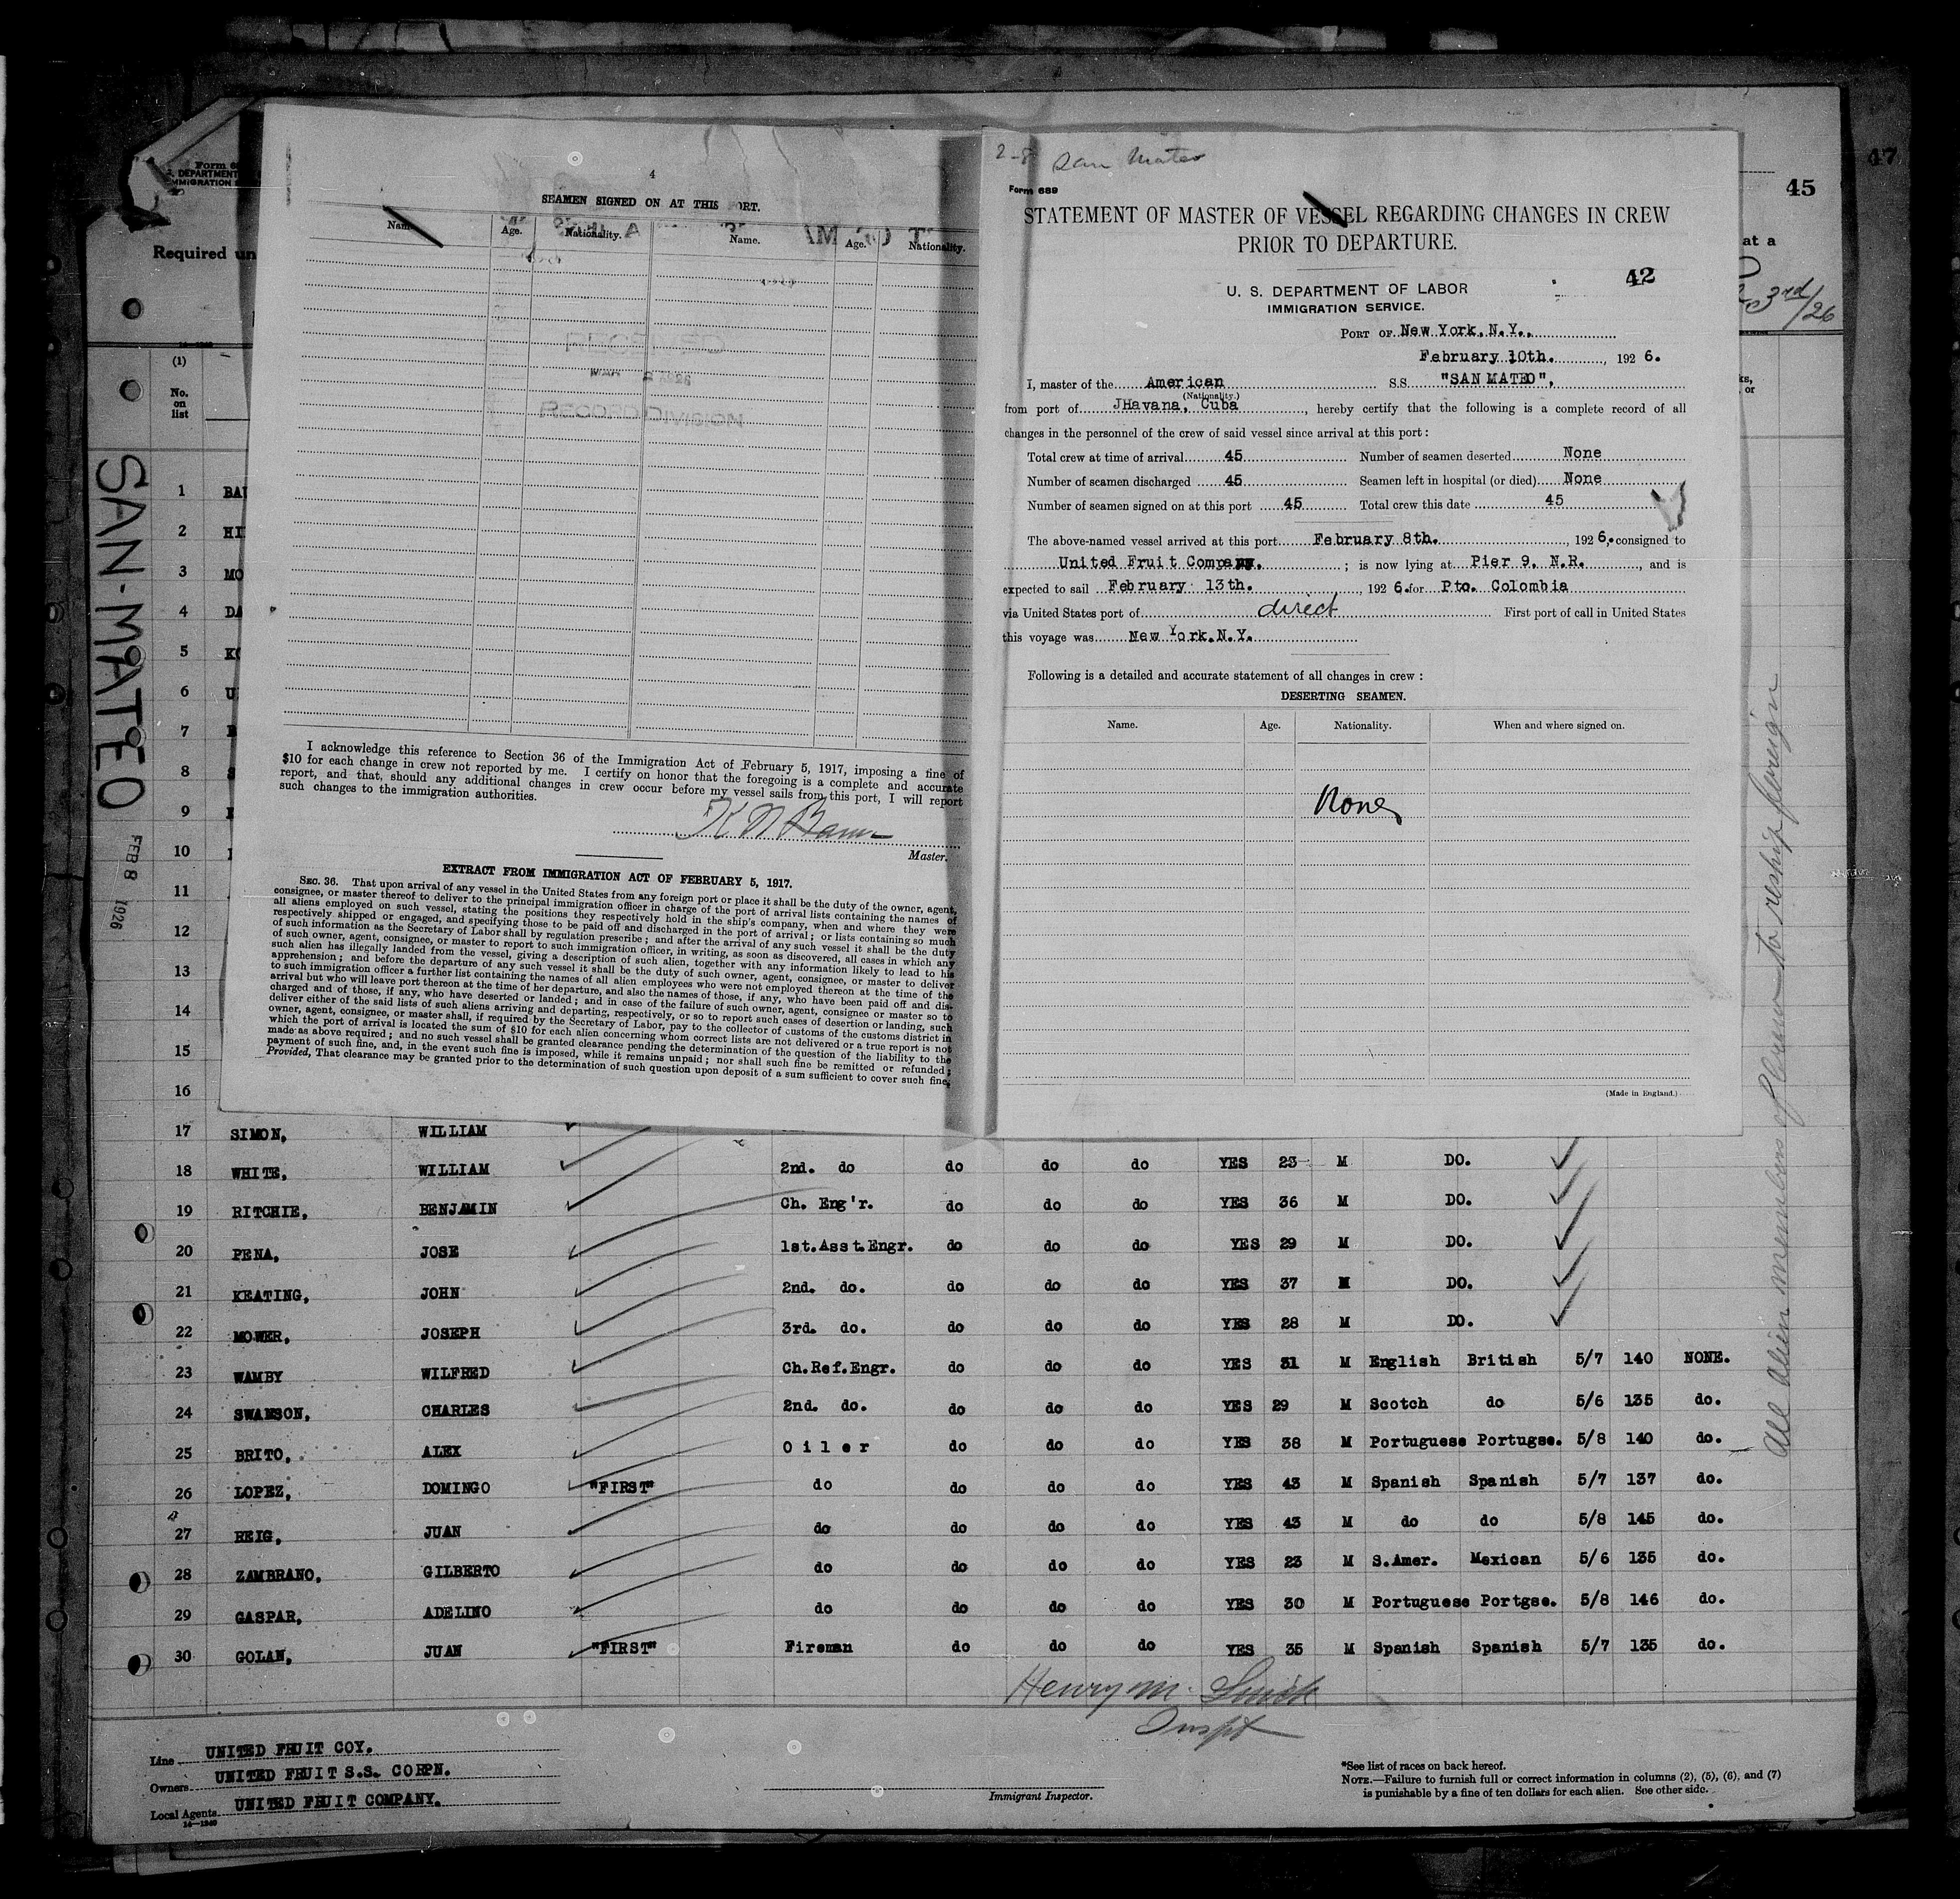 47
45
Form 68
DEPARTMENT
IMMIGRATION
Required un
at a
3rd/26
(1)
No.
on
list
SAN-MATEO
FEB 8 1926
4
SEAMEN SIGNED ON AT THIS ORT.
Nam Age. Nationality. Name. Age. Nationality.
I acknowledge this reference to Section 36 of the Immigration Act of February 5, 1917, imposing a fine of
$10 for each change in crew not reported by me. I certify on honor that the foregoing is a complete and accurate
report, and that, should any additional changes in crew occur before my vessel sails from this port, I will report
such changes to the immigration authorities.
Master.
EXTRACT FROM IMMIGRATION ACT OF FEBRUARY 5, 1917.
SEC. 36. That upon arrival of any vessel in the United States from any foreign port or place it shall be the duty of the owner, agent,
consignee, or master thereof to deliver to the principal immigration officer in charge of the port of arrival lists containing the names of
all aliens employed on such vessel, stating the positions they respectively hold in the ship's company, when and where they were
respectively shipped or engaged, and specifying those to be paid off and discharged in the port of arrival; or lists containing so much
of such information as the Secretary of Labor shall by regulation prescribe; and after the arrival of any such vessel it shall be the duty
of such owner, agent, consignee, or master to report to such immigration officer, in writing, as soon as discovered, all cases in which any
such alien has illegally landed from the vessel, giving a description of such alien, together with any information likely to lead to his
apprehension; and before the departure of any such vessel it shall be the duty of such owner, agent, consignee, or master to deliver
to such immigration officer a further list containing the names of all alien employees who were not employed thereon at the time of the
arrival but who will leave port thereon at the time of her departure, and also the names of those, if any, who have been paid off and dis-
charged and of those, if any, who have deserted or landed; and in case of the failure of such owner, agent, consignee or master so to
deliver either of the said lists of such aliens arriving and departing, respectively, or so to report such cases of desertion or landing, such
owner, agent, consignee, or master shall, if required by the Secretary of Labor, pay to the collector of customs of the customs district in
which the port of arrival is located the sum of $10 for each alien concerning whom correct lists are not delivered or a true report is not
made as above required; and no such vessel shall be granted clearance pending the determination of the question of the liability to the
payment of such fine, and, in the event such fine is imposed, while it remains unpaid; nor shall such fine be remitted or refunded;
Provided, That clearance may be granted prior to the determination of such question upon deposit of a sum sufficient to cover such fine.
2-8 San Mateo
Form 689
STATEMENT OF MASTER OF VESSEL REGARDING CHANGES IN CREW
PRIOR TO DEPARTURE.
42
U. S. DEPARTMENT OF LABOR
IMMIGRATION SERVICE.
PORT OF New York, N.Y.,
February 10th. , 192 6.
I, master of the American S.S. "SAN MATEO",
(Nationality.)
from port of JHavana, Cuba , hereby certify that the following is a complete record of all
changes in the personnel of the crew of said vessel since arrival at this port:
Total crew at time of arrival 45 Number of seamen deserted None
Number of seamen discharged 45 Seamen left in hospital (or died) None
Number of seamen signed on at this port 45 Total crew this date 45
The above-named vessel arrived at this port February 8th. , 192 6, consigned to
United Fruit Company. ; is now lying at Pier 9, N.R. , and is
expected to sail February 13th. , 192 6. for Pto. Colombia
via United States port of direct First port of call in United States
this voyage was New York.N.Y.
Following is a detailed and accurate statement of all changes in crew :
DESERTING SEAMEN.
Name. Age. Nationality. When and where signed on.
None
(Made in England.)
1 BAU
2 HI
3 MO
4 DA
5 KO
6 U
7
8
9
10
11
12
13
14
15
16
17 SIMON, WILLIAM
18 WHITE, WILLIAM 2nd. do do do do YES 23 M DO.
19 RITCHIE, BENJAMIN Ch. Eng'r. do do do YES 36 M DO.
20 PENA, JOSE 1st.Asst.Engr. do do do YES 29 M DO.
21 KEATING, JOHN 2nd. do. do do do YES 37 M DO.
22 MOWER, JOSEPH 3rd. do. do do do YES 28 M DO.
23 WAMBY WILFRED Ch.Ref.Engr. do do do YES 31 M English British 5/7 140 NONE.
24 SWANSON, CHARLES 2nd. do. do do do YES 29 M Scotch do 5/6 135 do.
25 BRITO, ALEX Oiler do do do YES 38 M Portuguese Portugse. 5/8 140 do.
26 LOPEZ, DOMINGO "FIRST" do do do do YES 43 M Spanish Spanish 5/7 137 do.
27 REIG, JUAN do do do do YES 43 M do do 5/8 145 do.
28 ZAMBRANO, GILBERTO do do do do YES 23 M S.Amer. Mexican 5/6 135 do.
29 GASPAR, ADELINO do do do do YES 30 M Portuguese Portgse. 5/8 146 do.
30 GOLAN, JUAN "FIRST" Fireman do do do YES 35 M Spanish Spanish 5/7 135 do.
All Alien members of Crew to reship foreign
Henry M. Smith
Inspt
Line UNITED FRUIT COY.
Owners UNITED FRUIT S.S. CORPN.
Local Agents UNITED FRUIT COMPANY.
14—1240
Immigrant Inspector.
*See list of races on back hereof.
NOTE.—Failure to furnish full or correct information in columns (2), (5), (6), and (7)
is punishable by a fine of ten dollars for each alien. See other side.